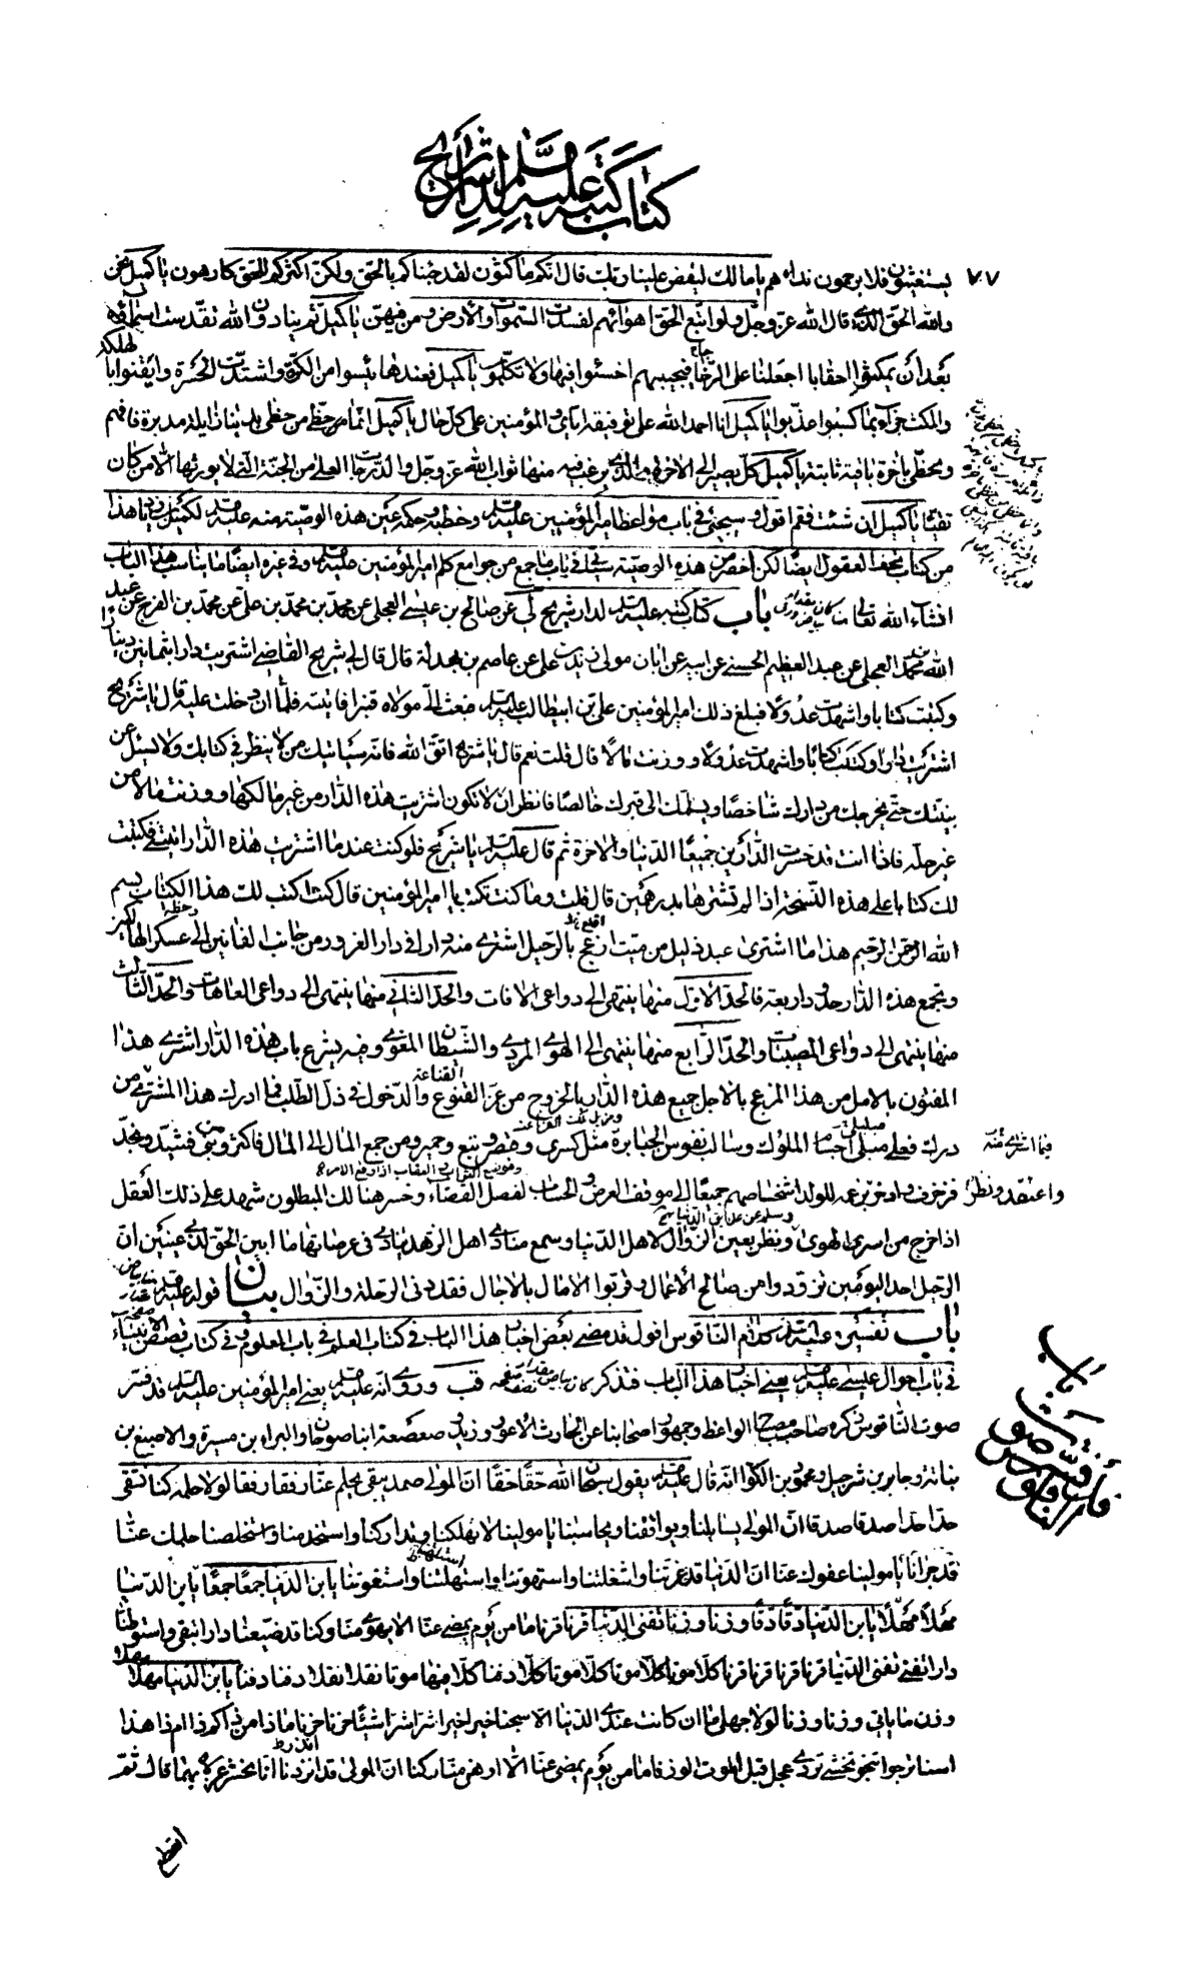 كتاب كتبه عليه السلم لدار شريح
٧٧
يستغيثون فلا يرحمون نداؤهم يا مالك ليقض علينا ربك قال انكم ماكثون لقد جئناكم بالحق ولكن اكثركم للحق كارهون يا كميل نحن
والله الحق الذى قال الله عز وجل ولو اتبع الحق اهوائهم لفسدت السموات والأرض ومن فيهن يا كميل ثم ينادون الله تقدست اسماؤه
بعد أن يمكثوا احقابا اجعلنا على الرخا فيجيبهم اخسئوا فيها ولا تكلمون يا كميل فعندها يئسوا من الكرة واشتدت الحسرة وايقنوا بالهلكة
والمكث جزاء بما كسبوا عذبوا يا كميل انا احمد الله على توفيقه اياى والمؤمنين على كل حال يا كميل انما حظى من حظى بدنيا زايلة مدبرة فافهم
ويحظى باخرة باقية ثابتة يا كميل كل يصير الى الاخرة والذى يرغب فيه منها ثواب الله عز وجل والدرجات العلى من الجنة التى لا يورثها الا من كان
تقيا يا كميل ان شئت فقم اقول وسيجئ فى باب مواعظ امير المؤمنين عليه السلم وخطبه وحكمه عين هذه الوصية منه عليه السلم لكميل بن زياد هذا
من كتاب تحف العقول ايضا لكن اخصر من هذه الوصية فى باب ما جمع من جوامع كلم امير المؤمنين عليه السلم وفى غيره ايضا ما يناسب هذا الباب
انشاء الله تعالى باب كتاب كتبه عليه السلم لدار شريح لى عن صالح بن عيسى العجلى عن محمد بن محمد بن على عن محمد بن الفرج عن عبد
الله بن محمد العجلى عن عبد العظيم الحسنى عن ابيه عن ابان مولى زيد بن على عن عاصم بن بهدلة قال قال لى شريح القاضى اشتريت دارا بثمانين دينارا
وكتبت كتابا واشهدت عدولا فبلغ ذلك امير المؤمنين على بن ابيطالب عليه السلم فبعث الى مولاه قنبرا فاتيته فلما ان دخلت عليه قال يا شريح
اشتريت دارا وكتبت كتابا واشهدت عدولا ووزنت مالا قال قلت نعم قال يا شريح اتق الله فانه سياتيك من لا ينظر فى كتابك ولا يسئل عن
بينتك حتى يخرجك من دارك شاخصا ويسلمك الى قبرك خالصا فانظر ان لا تكون اشتريت هذه الدار من غير مالكها ووزنت مالا من
غير حله فاذا انت قد خسرت الدارين جميعا الدنيا والاخرة ثم قال عليه السلم يا شريح فلو كنت عندما اشتريت هذه الدار اتيتنى فكتبت
لك كتابا على هذه النسخة اذا لم تشترها بدرهمين قال قلت وما كنت تكتب يا امير المؤمنين قال كنت اكتب لك هذا الكتاب بسم
الله الرحمن الرحيم هذا ما اشترى عبد ذليل من ميت ازعج بالرحيل اشترى منه دارا فى دار الغرور من جانب الفانين الى عسكر الهالكين
وتجمع هذه الدار حدود اربعة فالحد الاول منها ينتهى الى دواعى الافات والحد الثانى منها ينتهى الى دواعى العاهات والحد الثالث
منها ينتهى الى دواعى المصيبات والحد الرابع منها ينتهى الى الهوى المردى والشيطان المغوى وفيه يشرع باب هذه الدار اشترى هذا
المفتون بالامل من هذا المزعج بالاجل جميع هذه الدار بالخروج من عز القنوع والدخول فى ذل الطلب فما ادرك هذا المشترى من
درك فعلى مبلى اجسام الملوك وسالب نفوس الجبابرة مثل كسرى وقيصر وتبع وحمير ومن جمع المال الى المال فاكثر وبنى فشيد ونجد
فزخرف وادخر بزعمه للولد اشخاصهم جميعا الى موقف العرض والحساب لفصل القضاء وخسر هنالك المبطلون شهد على ذلك العقل
اذا خرج من اسرى الهوى ونظر بعين الزوال لاهل الدنيا وسمع منادى اهل الزهد ينادى فى عرصاتها ما ابين الحق لذى عينين ان
الرحيل احد اليومين تزودوا من صالح الأعمال وقربوا الامال بالاجال فقد دنى الرحلة والزوال بيان قوله عليه السلم
باب تفسيره عليه السلم كلام الناقوس اقول قد مضى بعض اخبار هذا الباب فى كتاب العلم فى باب العلوم وفى كتاب قصص الانبياء
فى باب احوال عيسى عليه السلم يعنى اخبار هذا الباب فتذكر قب وروى انه عليه السلم يعنى امير المؤمنين عليه السلم قد فسر
صوت الناقوس ذكره صاحب مصباح الواعظ وجمهور اصحابنا عن الحارث الاعور وزيد و صعصعة ابنا صوحان والبراء بن مسيرة والاصبغ بن
نباتة وجابر بن شرحبيل ومحمود بن الكوا انه قال عليه السلم يقول سبحان الله حقا حقا ان المولى صمد يبقى يحلم عنا رفقا رفقا لولا حلمه كنا نشقى
حقا حقا صدقا صدقا ان المولى يسائلنا ويوافقنا ويحاسبنا يا مولينا لا تهلكنا وتداركنا واستخدمنا واستخلصنا حلمك عنا
قد جرانا يا مولينا عفوك عنا ان الدنيا قد غرتنا واشغلتنا واستهوتنا واستهلتنا واستغوتنا يا بن الدنيا جمعا جمعا يا بن الدنيا
مهلا مهلا يا بن الدنيا دقا دقا وزنا وزنا تفنى الدنيا قرنا قرنا ما من يوم يمضى عنا الا يهوى منا ركنا قد ضيعنا دارا تبقى واستوطنا
دارا تفنى تفنى الدنيا قرنا قرنا قرنا قرنا كلا موتا كلا موتا كلا موتا كلا دفنا كلا فيها موتا نقلا نقلا دفنا دفنا يا بن الدنيا مهلا مهلا
وزن ما ياتى وزنا وزنا لولا جهلى ما ان كانت عندى الدنيا الا سجنا خيرا خيرا شرا شرا شيئا شيئا حزنا حزنا ماذا من ذا كم ذا ام ذا هذا
اسنا ترجوا تنجو تخشى تردى عجل قبل الموت الوزنا ما من يوم يمضى عنا الا اوهى منا ركنا ان المولى قد انذرنا انا نحشر غرلا بهما قال ثم
فيما اشترى منه
واعتقد ونظر
باب
فيما فسر من صوت
الناقوس
انقطع